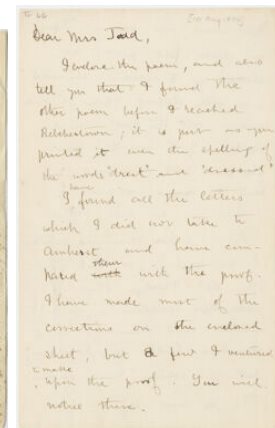 Dear Mrs Todd,
I enclose the poem, and also
tell you that I found the
other poem before I reached
Belchertown; it is just as you
printed it even the spelling of
the words "drest" and "dressed"
have
I found all the letters
which I did not take to
Amherst and have com-
pared them with with the proof.
I have made most of the
corrections on the enclosed
sheet, but a few I ventured
to make
upon the proof. You will
notice them.